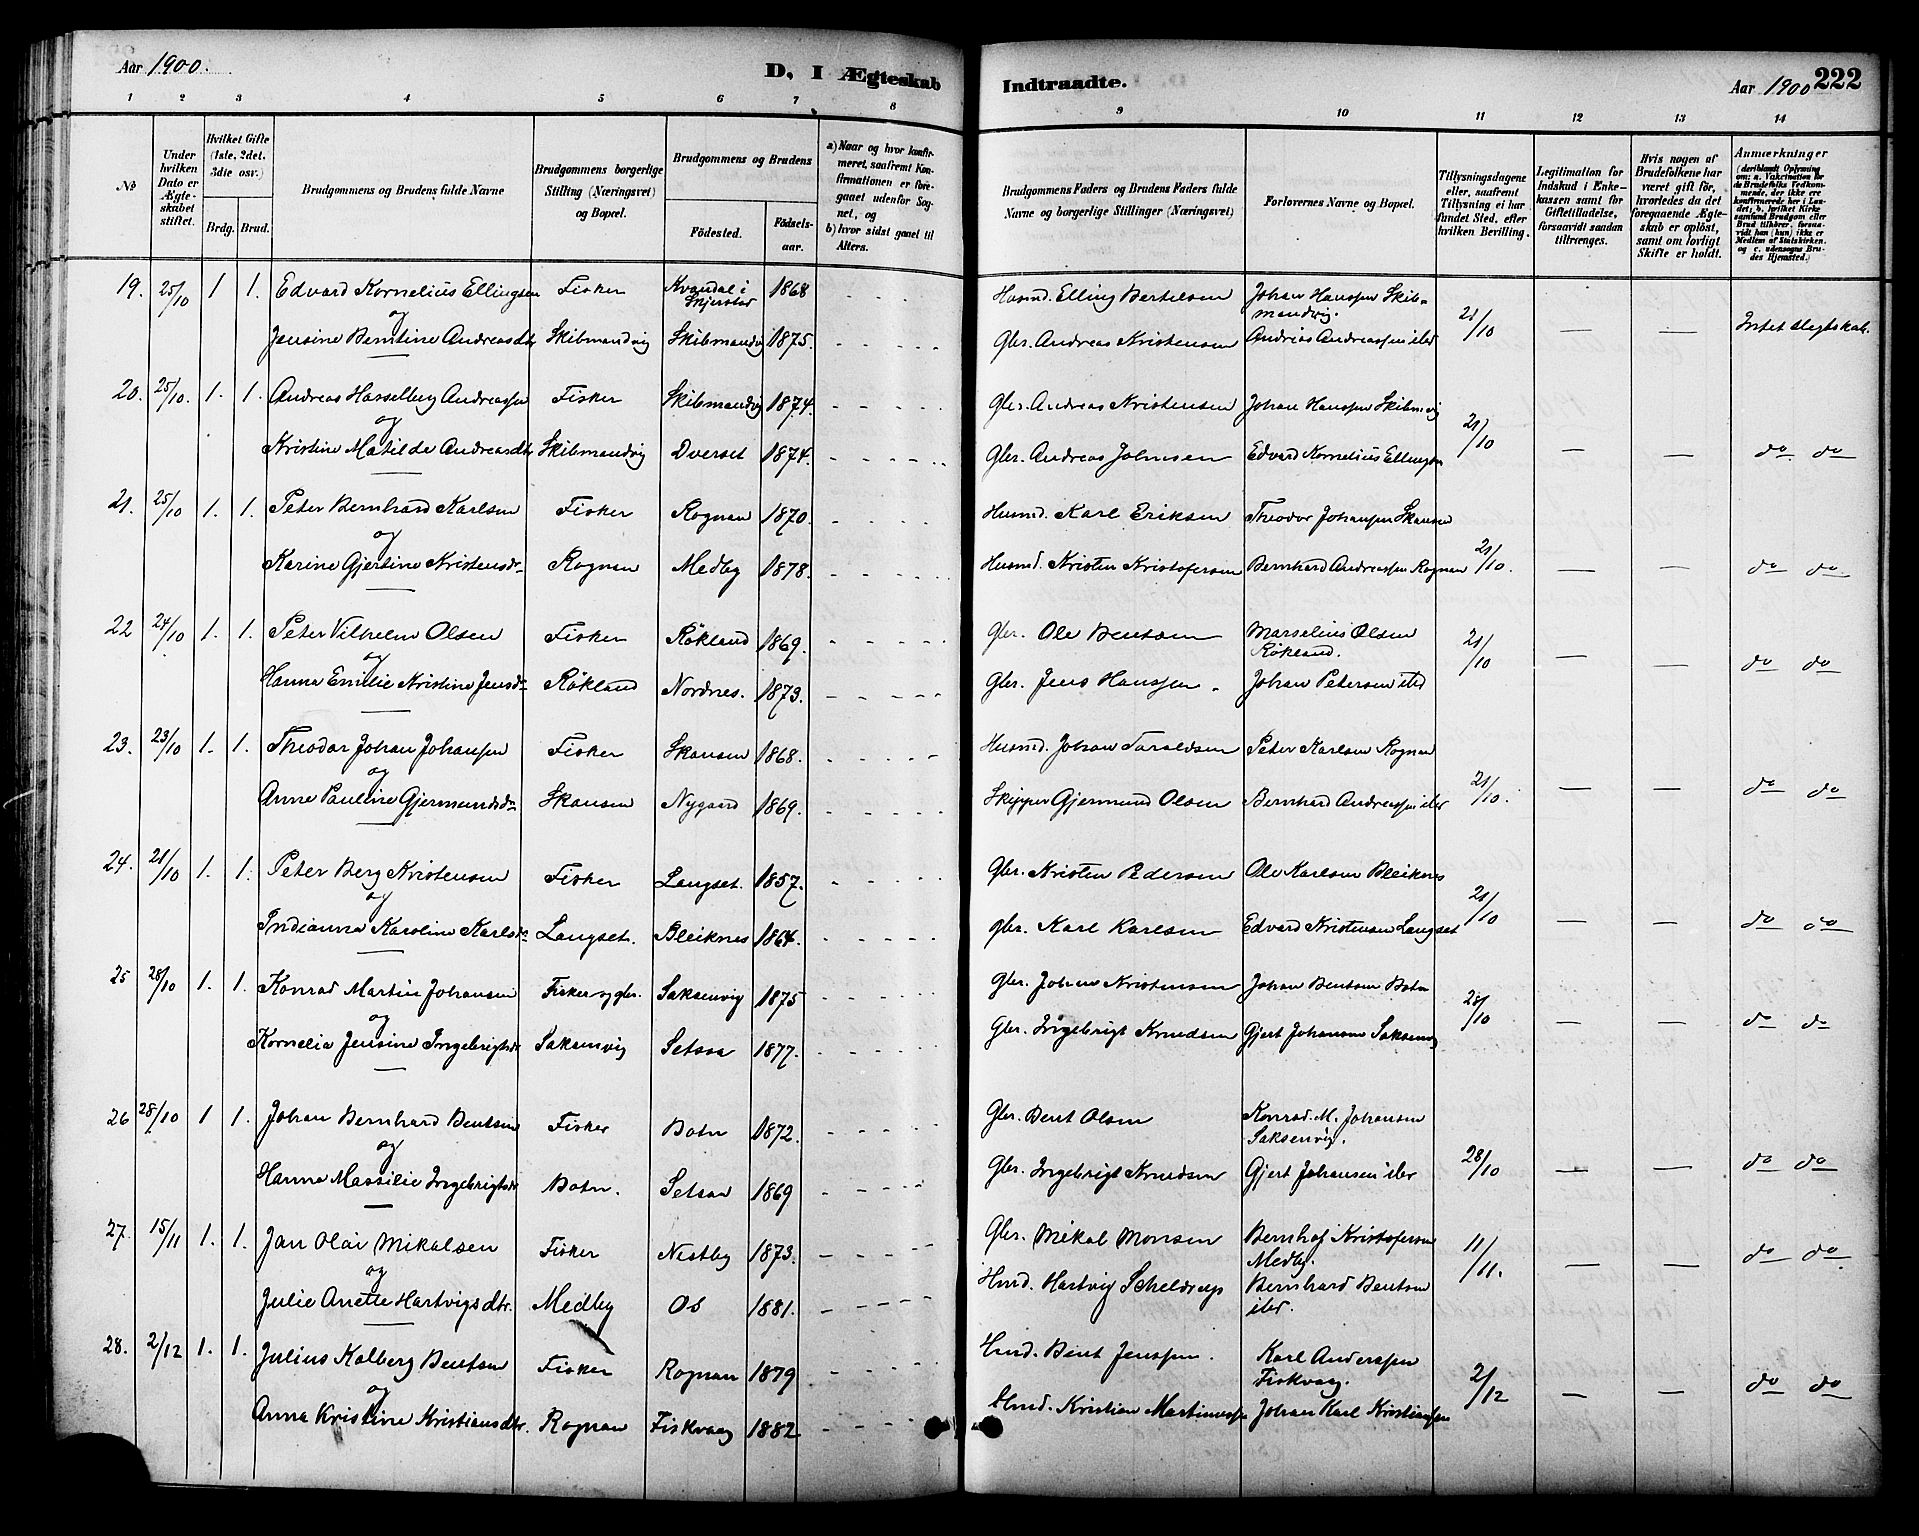 Aar 1900.
D. I Ægteskab Indtraadte.
Aar 1900 222
1 2 3 4 5 6 7 8 9 10 11 12 13 14
No
Under hvilken Dato er Ægteskabet stiftet.
Hvilket Gifte (1ste, 2det, 3die osv.)
Brdg. Brud.
Brudgommens og Brudens fulde Navne
Brudgommens borgerlige Stilling (Næringsvei) og Bopæl.
Brudgommens og Brudens
Fødested. Fødsels-aar.
a) Naar og hvor konfirmeret, saafremt Konfirmationen er foregaaet udenfor Sognet, og
b) hvor sidst gaaet til Alters.
Brudgommens Faders og Brudens Faders fulde Navne og borgerlige Stillinger (Næringsvei)
Forlovernes Navne og Bopæl.
Tillysningsdagene eller, saafremt Tillysning ei har fundet Sted, efter hvilken Bevilling.
Legitimation for Indskud i Enkekassen samt for Giftetilladelse, forsaavidt saadan tiltrænges.
Hvis nogen af Brudefolkene har været gift før, hvorledes da det foregaaende Ægteskab er opløst, samt om lovligt Skifte er holdt.
Anmærkninger
(deriblandt Oplysning om: a. Vakcination for de Brudefolks Vedkommende, der ikke ere konfirmerede her i Landet, b. hvilket Kirkesamfund Brudgom eller Brud tilhører, forsaavidt han (hun) ikke er Medlem af Statskirken, og c. udensogns Brudes Hjemsted.)
19. 25/10 1 1. Edvard Kornelius Ellingsen Fisker Kvandal i Skjerstad 1868 Husmd. Elling Bertelsen Johan Hanssen Skibmandvig. 21/10 — — Intet slegtskab.
og
Jensine Bentine Andreasdtr Skibmandvig Skibmandvig 1875. Gbr. Andreas Kristensen Andreas Andreassen ibd
20. 25/10. 1. 1. Andreas Hasselberg Andreassen Fisker Skibmandvig 1874. Gbr. Andreas Kristensen Johan Hanssen Skibmvig 21/10 — — do do
og
Kristine Matilde Andreasdtr Skibmandvig Dverset 1874. Gbr. Andreas Johnsen Edvard Kornelius Ellingsen
21. 25/10 1. 1. Peter Bernhard Karlsen Fisker Rognan 1870. Husmd. Karl Eriksen Theodor Johansen Skansen 21/10. — — do do
og
Karine Gjertine Kristensdr Rognan Medby 1878. Husmd. Kristen Kristofersen Bernhard Andreassen Rognan
22 24/10 1. 1. Peter Vilhelm Olsen Fisker Røkland 1869. Gbr. Ole Bentsen Marselius Olsen Røkland. 21/10 — — do do
og
Hanna Emilie Kristine Jensdr Røkland Nordnes. 1873. Gbr. Jens Hanssen. Johan Petersen ibd
23. 23/10 1. 1. Theodor Johan Johansen Fisker Skansen 1868. Husmd. Johan Taraldsen Peter Karlsen Rognan 21/10. — — do do
og
Anne Pauline Gjermundsdr Skansen Nygaard 1869. Skipper Gjermund Olsen Bernhard Andreassen ibd
24. 21/10 1. 1. Peter Berg Kristensen Fisker Langset. 1857. Gbr. Kristen Pedersen Ole Karlsen Bleiknes 21/10 — — do do
og
Indianna Karoline Karlsdr Langset. Bleiknes 1864. Gbr. Karl Karlsen Edvard Kristensen Langset
25 28/10 1. 1. Konrad Martin Johansen Fisker og gbr. Saksenvig 1875 Gbr. Johan Kristensen Johan Bentsen Botn 28/10 — — do do
og
Kornelia Jensine Ingebrigtsdr Saksenvig Setsaa 1877. Gbr. Ingebrigt Knudsen Gjert Johansen Saksenvig
26 28/10 1 1. Johan Bernhard Bentsen Fisker Botn 1872. Gbr. Bent Olsen Konrad. M. Johansen Saksenvig. 28/10 — — do do
og
Hanna Massilie Ingebrigtsdr Botn. Setsaa 1869 Gbr. Ingebrigt Knudsen Gjert Johansen ibd
27. 15/11 1. 1. Jan Olai Mikalsen Fisker Nestby 1873. Gbr. Mikal Monsen Bernhof Kristofersen Medby. 11/11. — — do do
og
Julie Anette Hartvigsdtr. Medby Os 1881. Hmd. Hartvig Scheldrup Bernhard Bentsen ibd.
28. 2/12 1. 1. Julius Kolberg Bentsen Fisker Rognan 1879 Hmd. Bent Jenssen. Karl Anderssen Fiskvaag. 2/12 — — do do
og
Anna Kristine Kristiansdtr. Rognan Fiskvaag 1882. Hmd. Kristian Martinussen Johan Karl Kristiansen